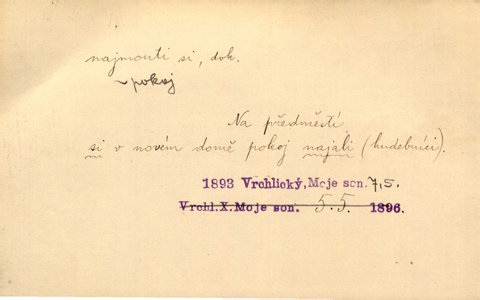 najmouti si, dok.
~pokoj
Na předměstí
si v novém domě pokoj najali (hudebníci).
1893 Vrchlický, Moje son. 7, 5.
Vrchl. X. Moje son. 5.5. 1896.